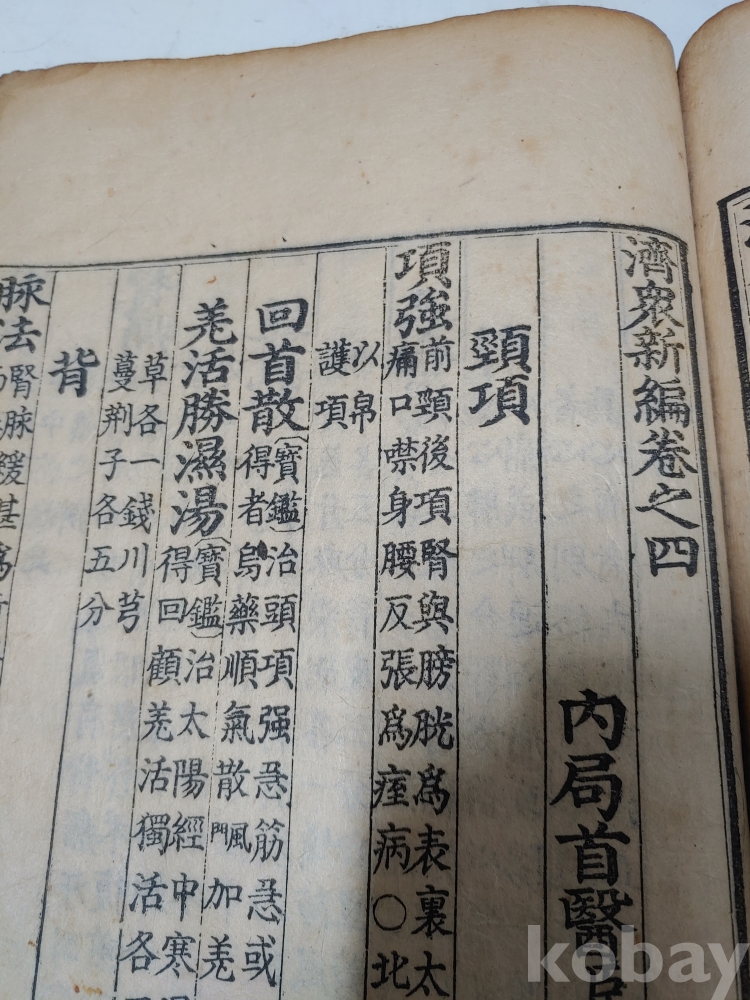 濟衆新編卷之四
內局首醫
頸項
項強前頸後項腎與膀胱爲表裏太
痛口噤身腰反張爲痓病○北
以帛
護項
回首散(寶鑑)治頭項强急筋急或
得者烏藥順氣散門風加羗
羗活勝濕湯(寶鑑)治太陽經中寒濕
得回顧羗活獨活各
草各一錢川芎
蔓荊子各五分
背
脉法
腎脉緩甚爲
kobay